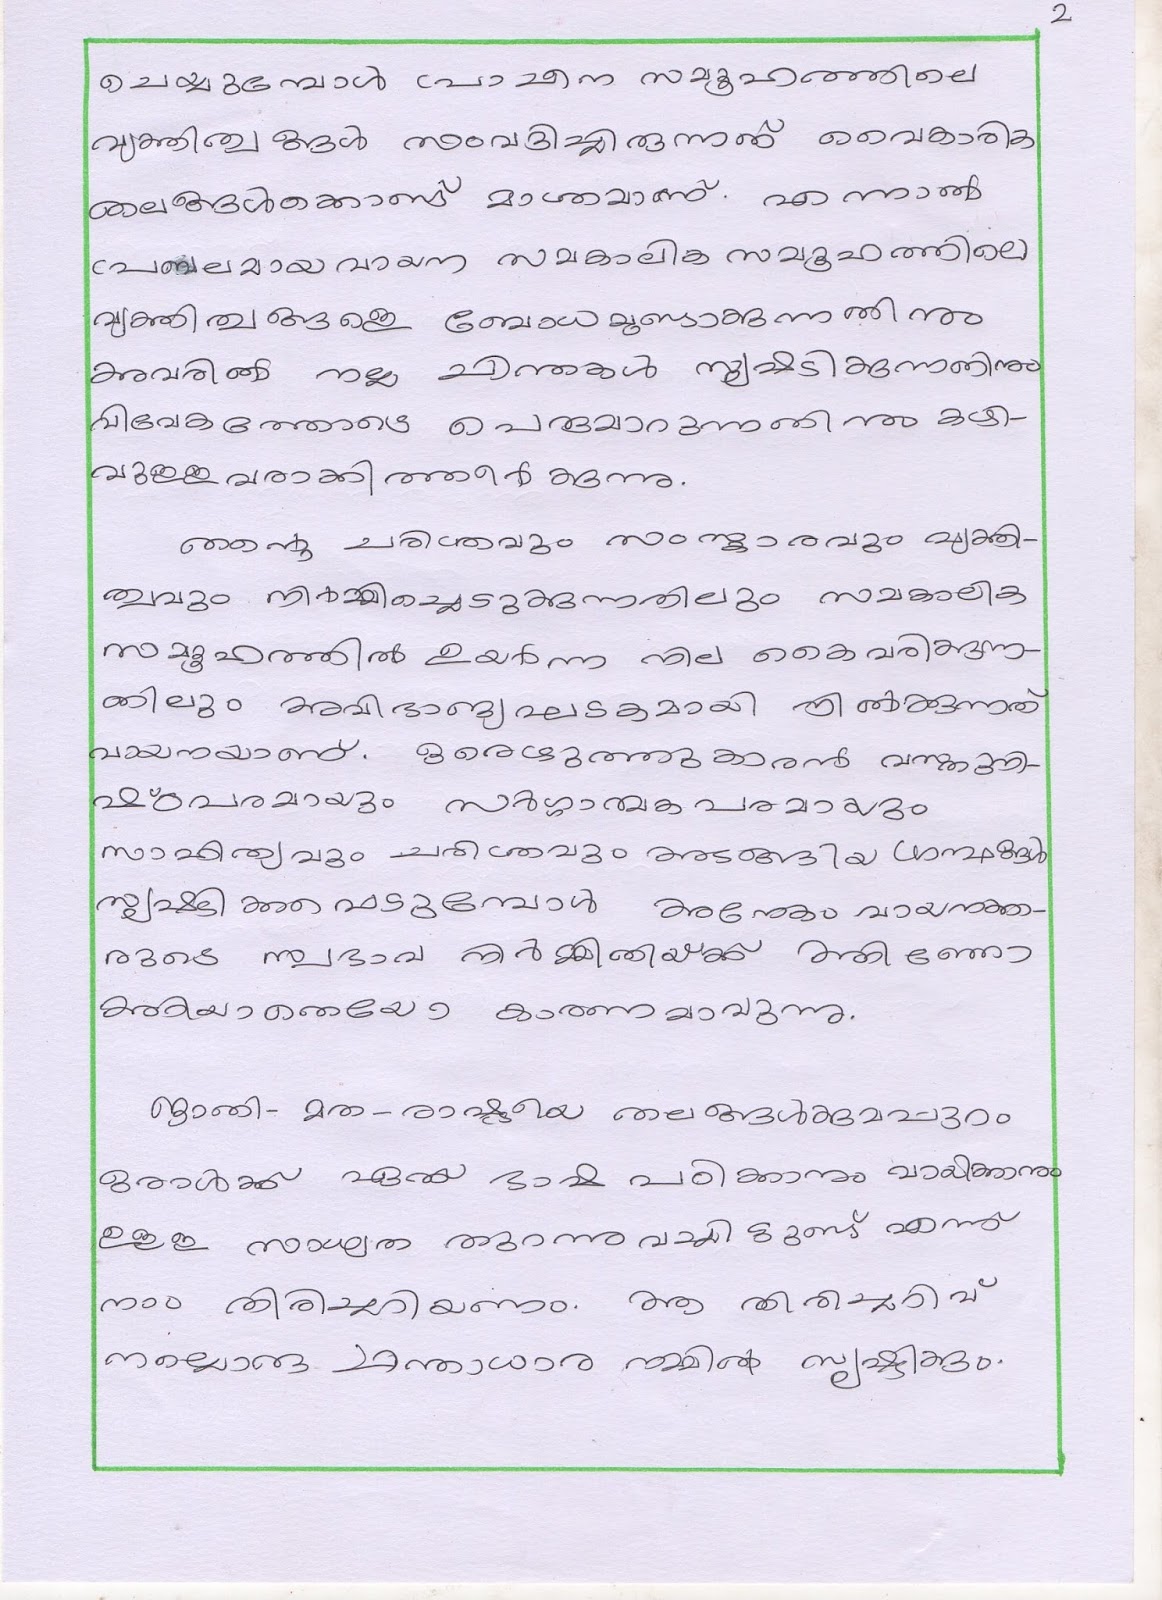 2
ചെയ്യുമ്പോൾ പ്രാചീന സമൂഹത്തിലെ
വ്യക്തിത്വങ്ങൾ സംവദിച്ചിരുന്നത് വൈകാരിക
തലങ്ങൾക്കൊണ്ട് മാത്രമാണ്. എന്നാൽ
പ്രബലമായ വായന സമകാലിക സമൂഹത്തിലെ
വ്യക്തിത്വങ്ങളെ ബോധമുണ്ടാക്കുന്നതിന്നും
അവരിൽ നല്ല ചിന്തകൾ സൃഷ്ടിക്കുന്നതിന്നും
വിവേകത്തോടെ പെരുമാറുന്നതിന്നും കഴി-
വുള്ളവരാക്കിത്തീർക്കുന്നു.
തന്റെ ചരിത്രവും സംസ്കാരവും വ്യക്തി-
ത്വവും നിർമ്മിച്ചെടുക്കുന്നതിലും സമകാലിക
സമൂഹത്തിൽ ഉയർന്ന നില കൈവരിക്കുന്ന-
തിലും അവിഭാജ്യഘടകമായി നിൽക്കുന്നത്
വായനയാണ്. ഒരെഴുത്തുകാരൻ വസ്തുനി-
ഷ്ഠപരമായും സർഗ്ഗാത്മകപരമായും
സാഹിത്യവും ചരിത്രവും അടങ്ങിയ ഗ്രന്ഥങ്ങൾ
സൃഷ്ടിക്കപ്പെടുമ്പോൾ അനേകം വായനക്കാ-
രുടെ സ്വഭാവ നിർമ്മിതിയ്ക്ക് അറിഞ്ഞോ
അറിയാതെയോ കാരണമാവുന്നു.
ജാതി- മത-രാഷ്ട്രീയ തലങ്ങൾക്കുമപ്പുറം
ഒരാൾക്ക് ഏത് ഭാഷ പഠിക്കാനും വായിക്കാനും
ഉള്ള സാധ്യത തുറന്നുവച്ചിട്ടുണ്ട് എന്ന്
നാം തിരിച്ചറിയണം. ആ തിരിച്ചറിവ്
നല്ലൊരു ചിന്താധാര നമ്മിൽ സൃഷ്ടിക്കും.